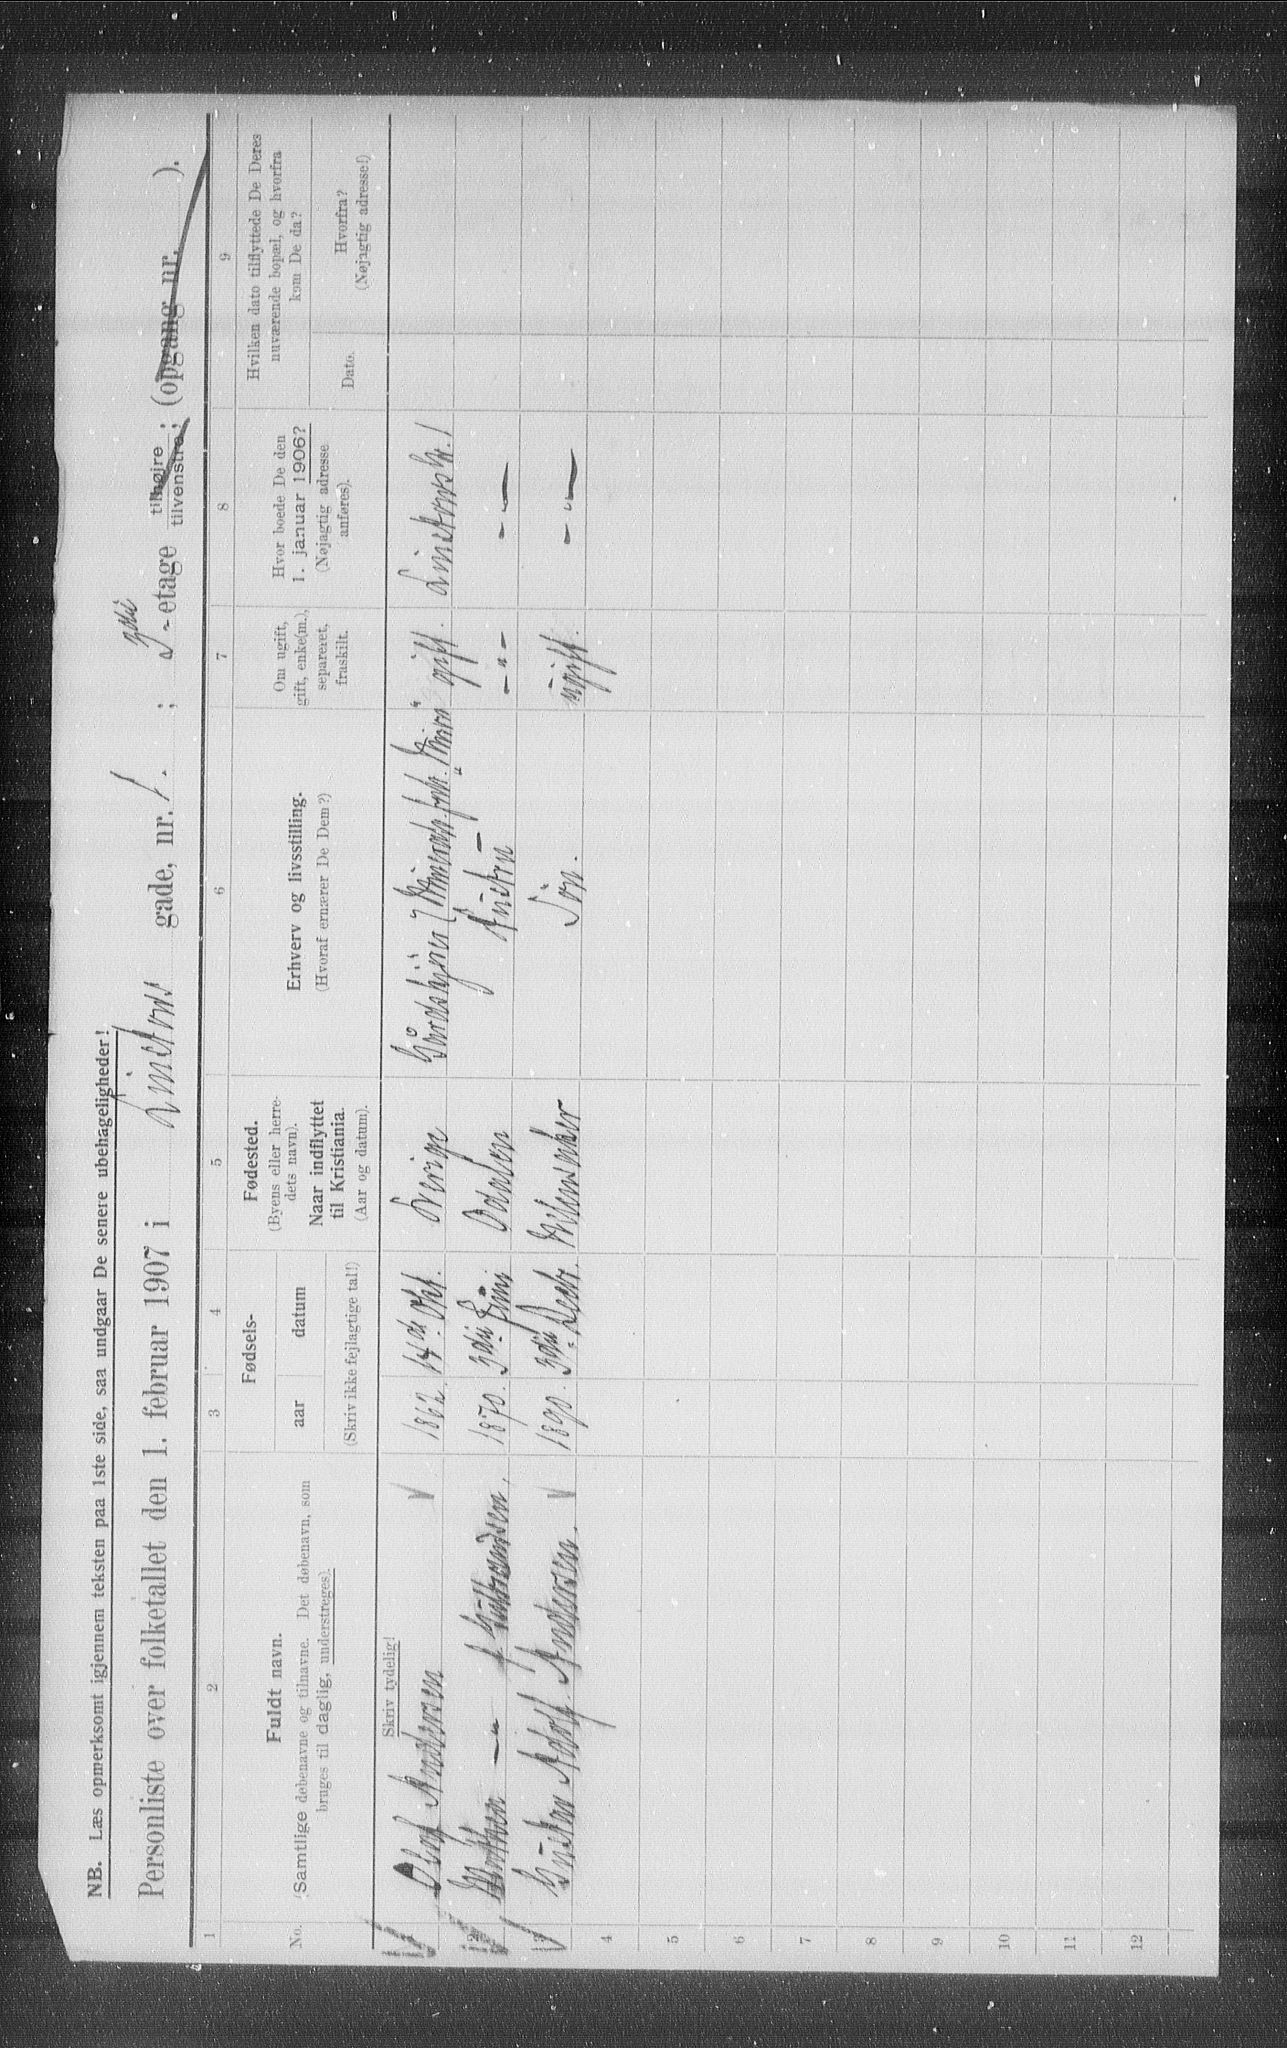 NB. Læs opmerksomt igjennem teksten paa 1ste side, saa undgaar De senere ubehageligheder!
Personliste over folketallet den 1. februar 1907 i Linstows gade, nr. 1. ; 2den -etage tilhøjre tilvenstre; (opgang nr. ).
1 2 3 4 5 6 7 8 9
No.
Fuldt navn.
(Samtlige døbenavne og tilnavne. Det døbenavn, som
bruges til daglig, understreges).
Fødsels-
aar datum
(Skriv ikke fejlagtige tal!)
Fødested.
(Byens eller herre-
dets navn).
Naar indflyttet
til Kristiania.
(Aar og datum).
Erhverv og livsstilling.
(Hvoraf ernærer De Dem?)
Om ugift,
gift, enke(m.),
separeret,
fraskilt.
Hvor boede De den
1. januar 1906?
(Nøjagtig adresse
anføres).
Hvilken dato tilflyttede De Deres
nuværende bopæl, og hvorfra
kom De da?
Dato.
Hvorfra?
(Nøjagtig adresse!)
Skriv tydelig!
Olaf Andersen 1862. 14de Okt. Sverige gift. Linstowsgt. 1
2 — " — f Gulbrandsen. 1870. 3die Juni Odalen Hustru - " - - " -
Gustav Adolf Andersen. 1890. 3die Decbr. Ullensaker Søn. ugift. - " -
4
5
6
7
8
9
10
11
12